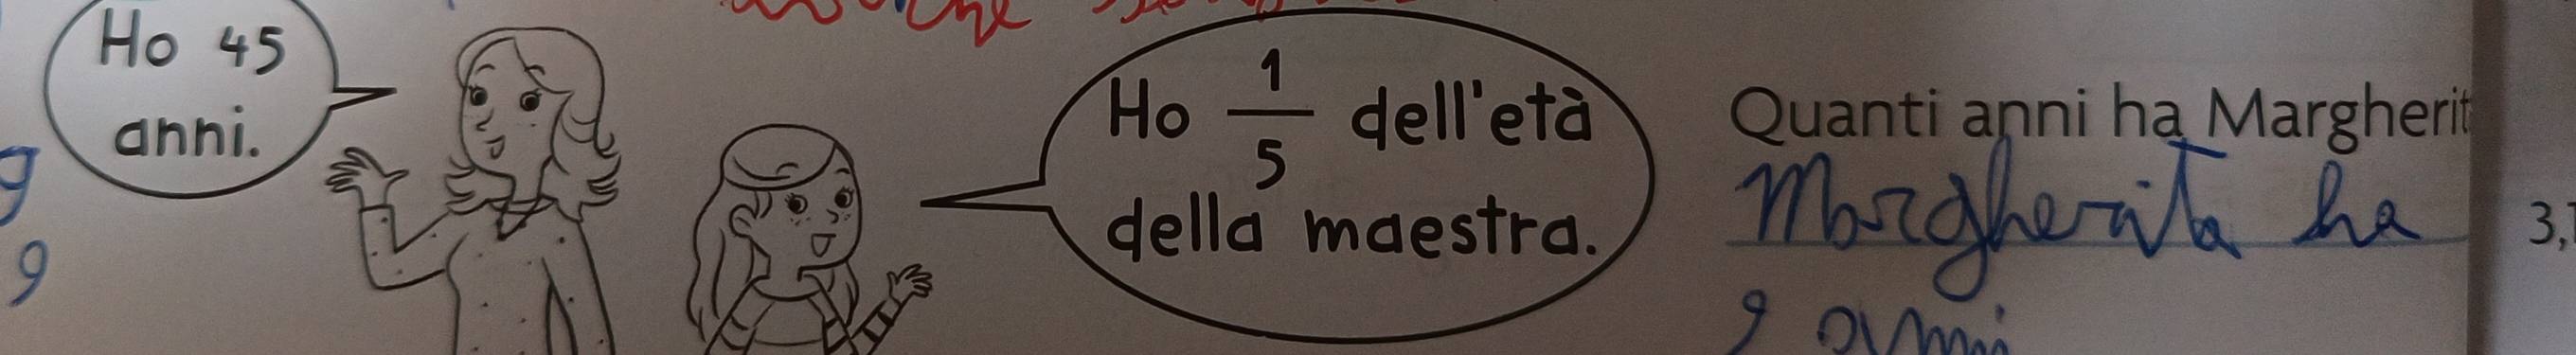 Ho 45
anni.
Ho 1/5 dell'età
della maestra.
Quanti anni ha Margherit
Margherita ha
9 anni
9
9
3,